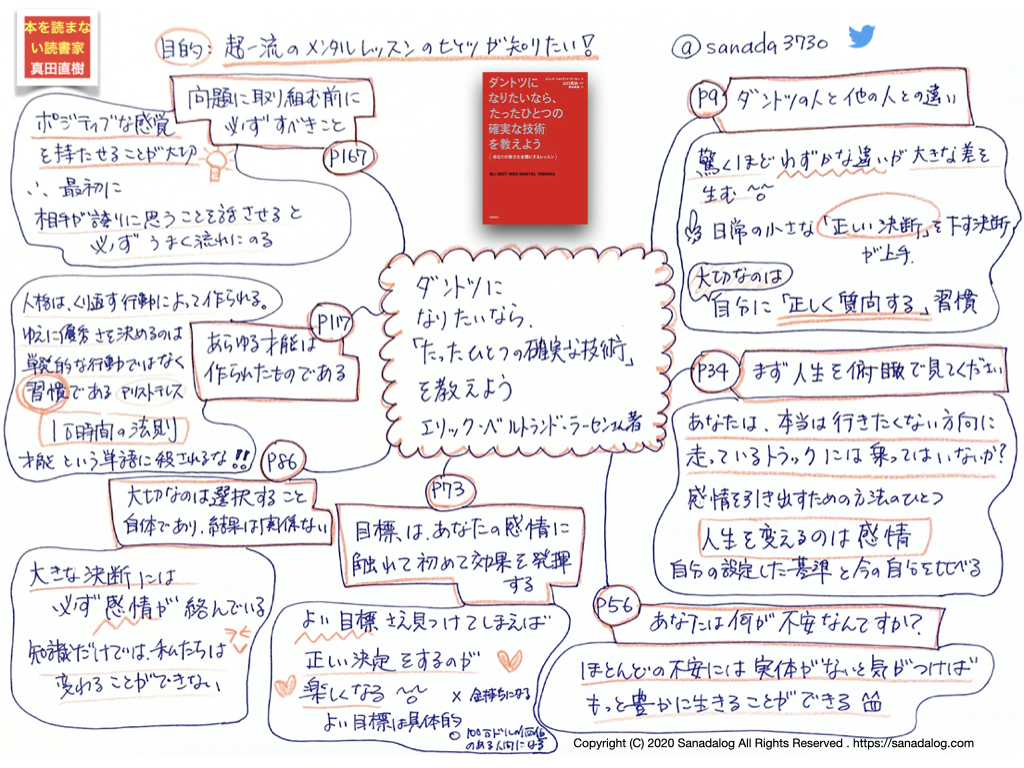 本を読まな
い読書家
真田直樹
目的: 超一流のメンタルレッスンのヒケツが知りたい!
@sanada3730
ダントツに
なりたいなら、
たったひとつの
確実な技術
を教えよう
P9
ダントツの人と他の人との違い
驚くほどわずかな違いが大きな差を
生む
日常の小さな「正しい決断」を下す決断
が上手.
大切なのは
自分に「正しく質問する」習慣
P34
まず人生を俯瞰で見てください
あなたは、本当は行きたくない方向に
走っているトラックには乗ってはいないか?
感情を引き出すための方法のひとつ
人生を変えるのは感情
自分の設定した基準と今の自分を比べる
P56
あなたは何が不安なんですか?
ほとんどの不安には実体がないと気がつけば
もっと豊かに生きることができる
P73
目標は、あなたの感情に
触れて初めて効果を発揮
する
よい目標さえ見つけてしまえば
正しい決定をするのが
楽しくなる
× 金持ちになる
よい目標は具体的
○ 100万ドルの価値
のある人間になる
P86
大切なのは選択すること
自体であり、結果は関係ない
大きな決断には
必ず感情が絡んでいる
知識だけでは、私たちは
変わることができない
P117
あらゆる才能は
作られたものである
人格は、くり返す行動によって作られる。
ゆえに優秀さを決めるのは
単発的な行動ではなく
習慣である アリストテレス
1万時間の法則
才能という単語に殺されるな!!
P167
問題に取り組む前に
必ずすべきこと
ポジティブな感覚
を持たせることが大切
∴ 最初に
相手が誇りに思うことを話させると
必ずうまく流れにのる
ダントツに
なりたいなら、
「たったひとつの確実な技術」
を教えよう
エリック・ベルトランド・ラーセン著
Copyright (C) 2020 Sanadalog All Rights Reserved . https://sanadalog.com